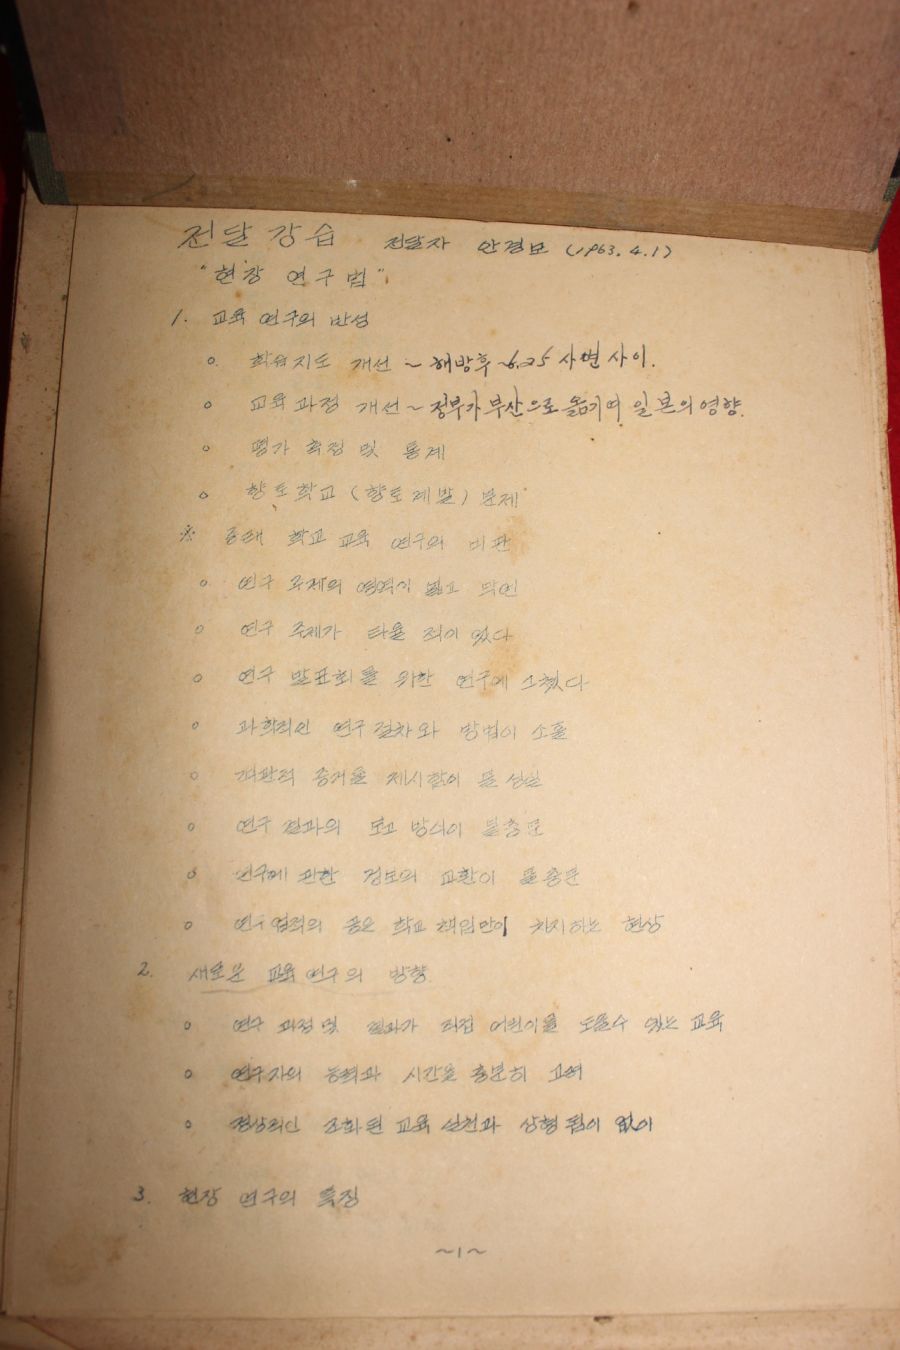 전달강습 전달자 안경모 (1963.4.1)
"현장 연구법"
1. 교육 연구의 반성
○ 학습지도 개선 ~ 해방후 ~ 6.25 사변 사이.
○ 교육과정 개선 ~ 정부가 부산으로 옮기며 일본의 영향.
○ 평가 측정 및 통계
○ 향토학교 (향토개발) 문제
※ 종래 학교 교육 연구의 비판
○ 연구 주제의 영역이 넓고 막연
○ 연구 주제가 타율적이 였다
○ 연구 발표회를 위한 연구에
○ 과학적인 연구 절차와 방법이 소홀
○ 객관적 증거를 제시함이 불성실
○ 연구 결과의 보고 방식이 불충분
○ 연구에 관한 정보의 교환이 불충분
○ 연구 업적의 학교 책임만이 차지하는 현상
2. 새로운 교육 연구의 방향
○ 연구 과정 및 결과가 직접 어린이를 도울수 있는 교육
○ 연구자의 능력과 시간을 충분히 고려
○ 정상적인 조화된 교육 실천과 상형됨이 없이
3. 현장 연구의 특징
~1~